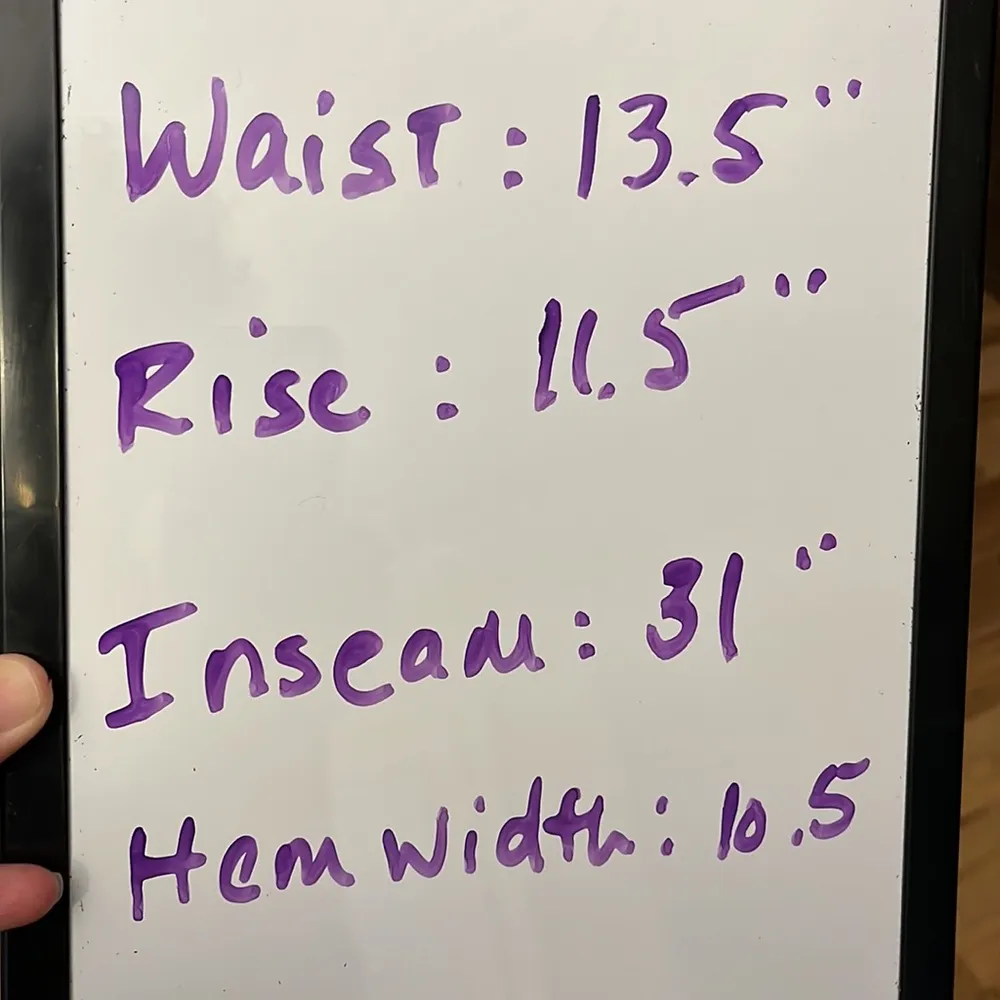 Waist : 13.5"
Rise : 11.5"
Inseam : 31"
Hem Width : 10.5